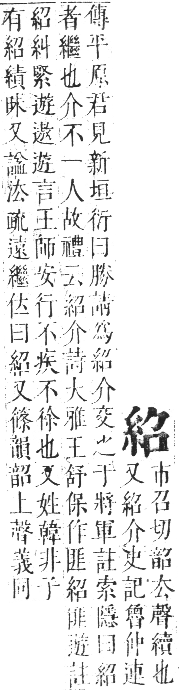 紹
市召切韶去聲續也
又紹介史記魯仲連
傳平原君見新垣衍曰勝請為紹介交之于將軍註索隱曰紹
者繼也介不一人故禮云紹介詩大雅王舒保作匪紹匪遊註
紹糾緊遊遨遊言王師安行不疾不徐也又姓韓非子
有紹績昧又諡法疏遠繼位曰紹又篠韻韶上聲義同